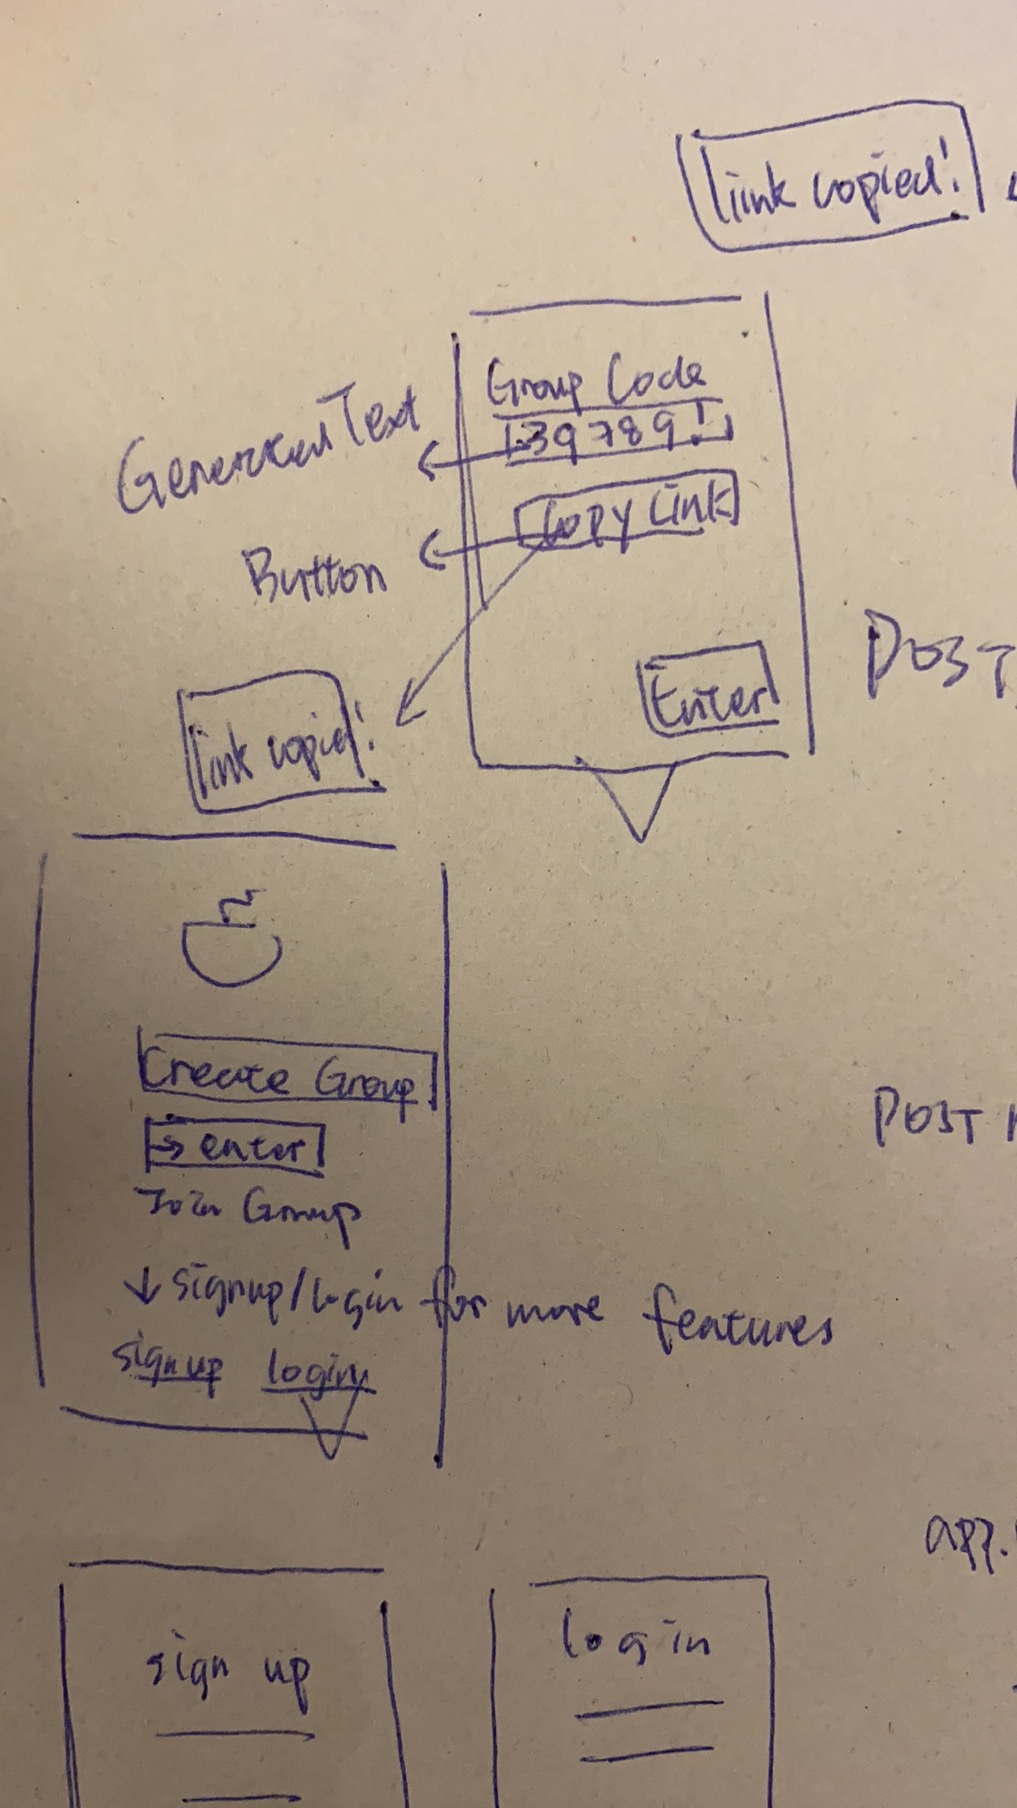 link copied!
Group Code
139789!
Generated Text
Copy Link
Button
Enter
link copied!
POST
Create Group
→ enter
Join Group
POST
↓ signup/login for more features
signup login
app.
sign up
log in